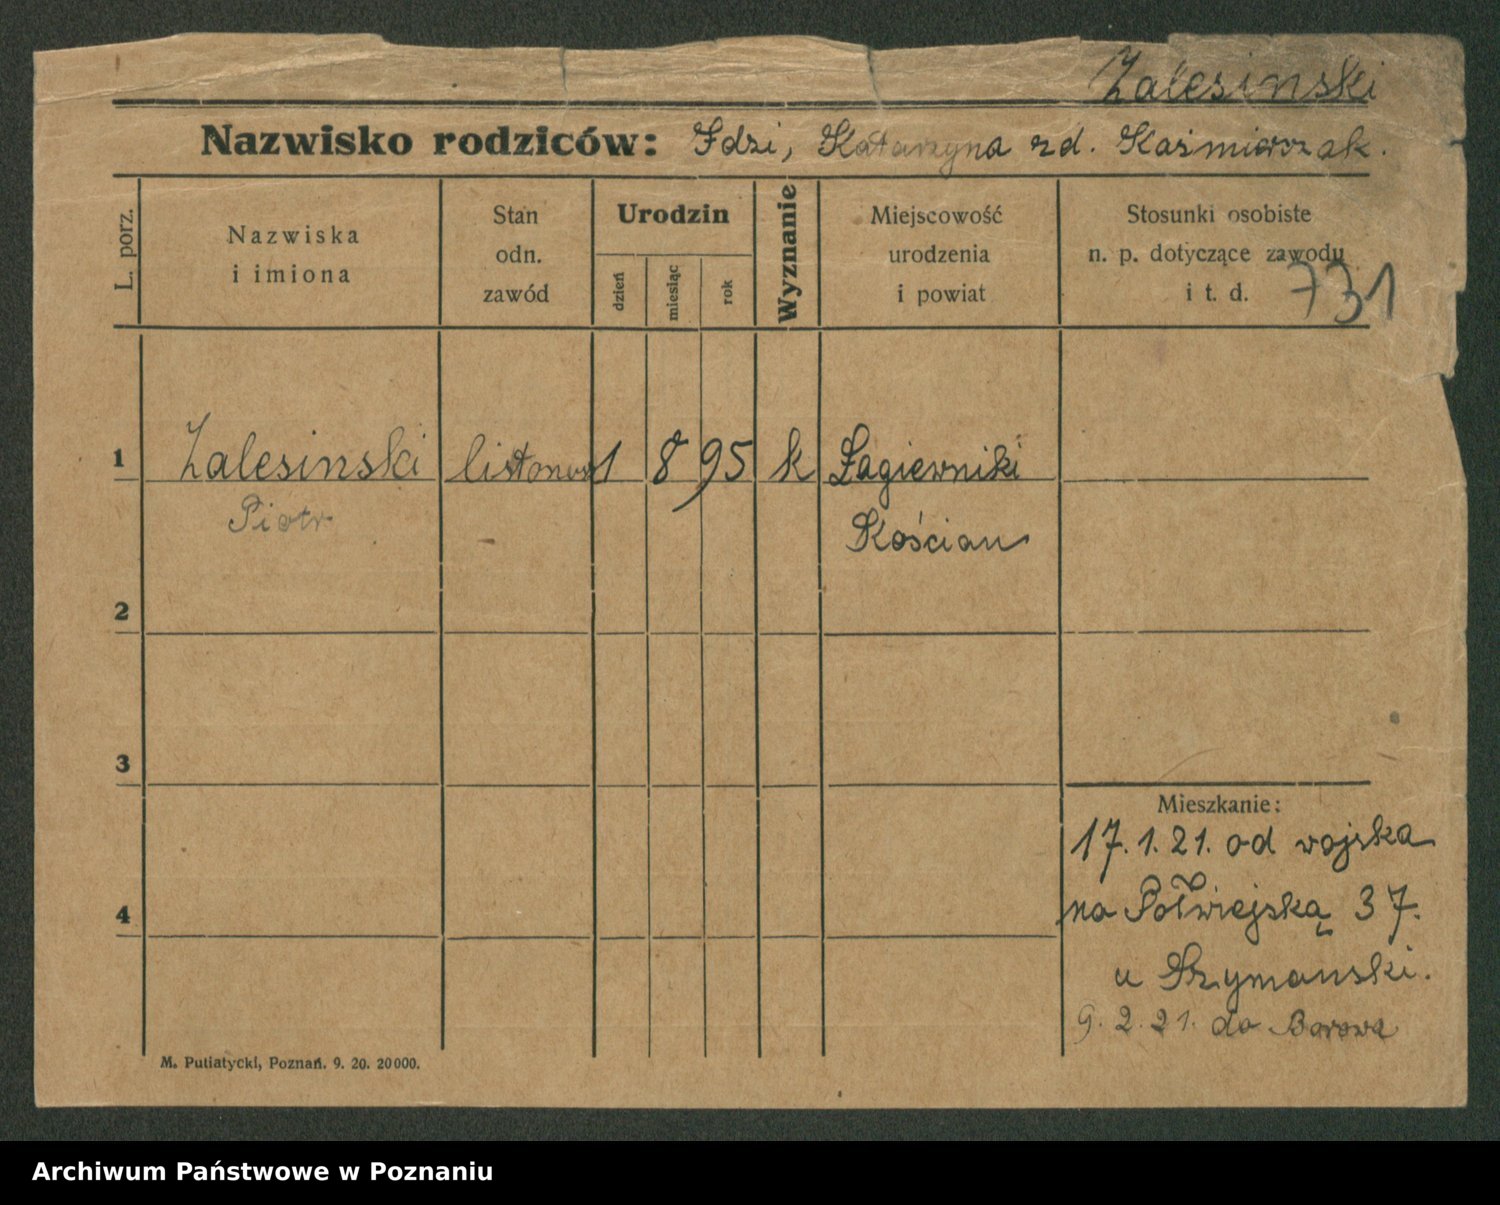 Zalesinski
Nazwisko rodziców: Idzi, Katarzyna zd. Kaźmierczak.
L. porz.
Nazwiska
i imiona
Stan
odn.
zawód
Urodzin
dzień
miesiąc
rok
Wyznanie
Miejscowość
urodzenia
i powiat
Stosunki osobiste
n. p. dotyczące zawodu
i t. d.
731
1 Zalesinski listonosz 1 8 95 k Łagiewniki
Piotr
Kościan
2
3
Mieszkanie:
17.1.21. od wojska
4
na Półwiejską 37.
u Szymanski.
9.2.21. do Borowa
M. Putiatycki, Poznań. 9. 20. 20000.
Archiwum Państwowe w Poznaniu